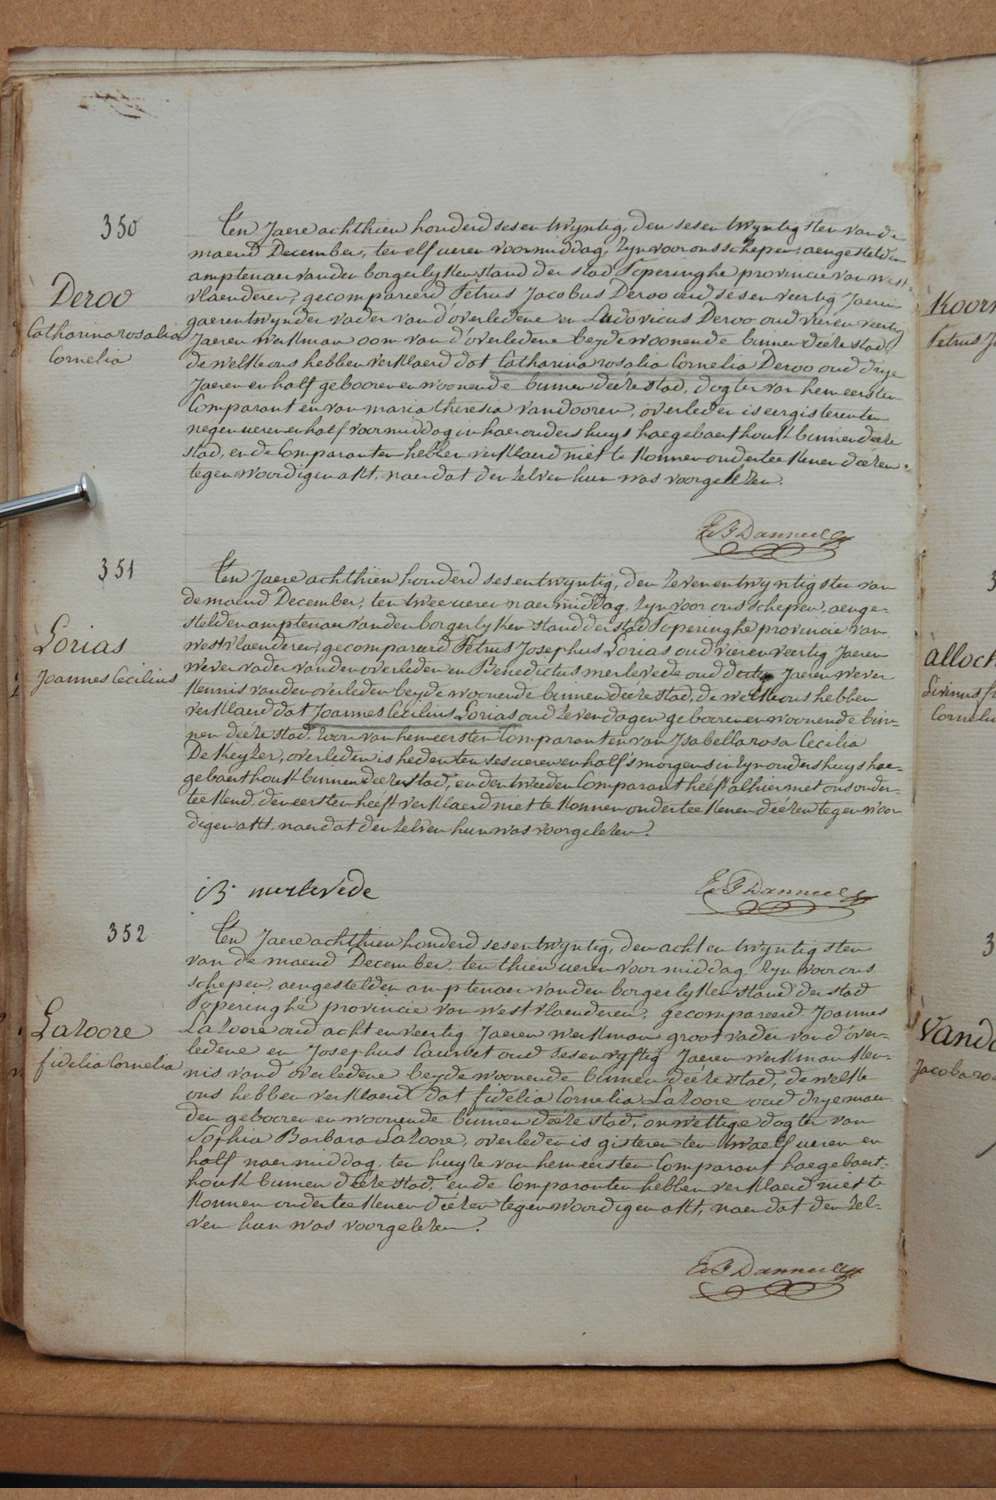 350
Deroo
Catharina rosalia
Cornelia
Ten Jaere achthien honderd sesentwyntig, den sesentwyntigsten vande
maend December, ten elf ueren voormiddag, zyn voor ons schepen, aengestelden
amptenaer vanden borgerlyken stand der stad Poperinghe provincie van west-
vlaenderen, gecompareerd Petrus Jacobus Deroo oud sesenveertig Jaeren
gaerentwynder vader van d'overledene en Ludovicus Deroo oud vierenveertig
Jaeren werkman oom van d'overledene beyde woonende binnen dieze stad,
de welke ons hebben verklaerd dat Catharina rosalia Cornelia Deroo oud drye
Jaeren en half gebooren en woonende binnen dieze stad, dogter van hem eersten
Comparant en van maria theresia vandooren, overleden is eergisteren ten
negen ueren en half voormiddag in haer ouders huys haegebaerthouk binnen dieze
stad, en de Comparanten hebben verklaerd niet te konnen onderteekenen diézen
tegenwoordigen akt, naer dat den zelven hun was voorgelezen.
351
Lorias
Joannes Cecilius
Ten Jaere achthien honderd sesentwyntig, den zevenentwyntigsten van
de maend December, ten twee ueren naermiddag, zyn voor ons schepen, aenge-
stelden amptenaer vanden borgerlyken stand der stad Poperinghe provincie van
westvlaenderen, gecompareerd Petrus Josephus Lorias oud vierenveertig Jaeren
wever vader vanden overleden en Benedictus merlevede oud dertig Jaeren wever
kennis vanden overleden beyde woonende binnen dieze stad, de welke ons hebben
verklaerd dat Joannes Cecilius Lorias oud zeven dagen gebooren en woonende bin-
nen dieze stad, zoon van hem eersten Comparant en van Isabella rosa Cecilia
De Keyzer, overleden is heden ten ses ueren en half s'morgens in zyn ouders huys hae-
gebaerthouk binnen dieze stad, en den tweeden Comparant heeft alhier met ons onder-
teekend, den eersten heeft verklaerd niet te konnen onderteekenen diézen tegenwoor-
digen akt, naer dat den zelven hun was voorgelezen.
B. merlevede
352
Lazoore
fidelia Cornelia
Ten Jaere achthien honderd sesentwyntig, den achtentwyntigsten
van de maend December, ten thien ueren voormiddag, zyn voor ons
schepen, aengestelden amptenaer vanden borgerlyken stand der stad
Poperinghe provincie van westvlaenderen, gecompareerd Joannes
Lazoore oud achtenveertig Jaeren werkman groot vader van d'over-
ledene en Josephus Cauwet oud sesenvyftig Jaeren werkman ken-
nis vand'overledene beyde woonende binnen dieze stad, de welke
ons hebben verklaerd dat fidelia Cornelia Lazoore oud drye maen-
den gebooren en woonende binnen dieze stad, onwettige dogter van
Sophia Barbara Lazoore, overleden is gisteren ten twaelf ueren en
half naermiddag, ten huyze van hem eersten Comparant haegebaert-
houk binnen dieze stad, en de Comparanten hebben verklaerd niet te
konnen onderteekenen diézen tegenwoordigen akt, naer dat den zel-
ven hun was voorgelezen.